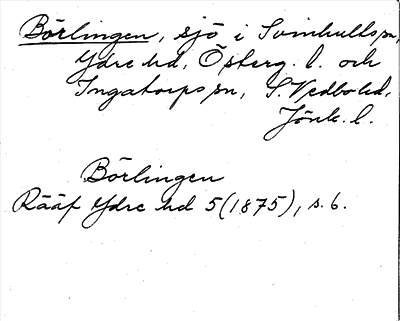 Börlingen, sjö i Svinhults sn,
Ydre hd, Österg. l. och
Ingatorps sn, S. Vedbo hd,
Jönk. l.
Börlingen
Rääf Ydre hd 5 (1875), s. 6.